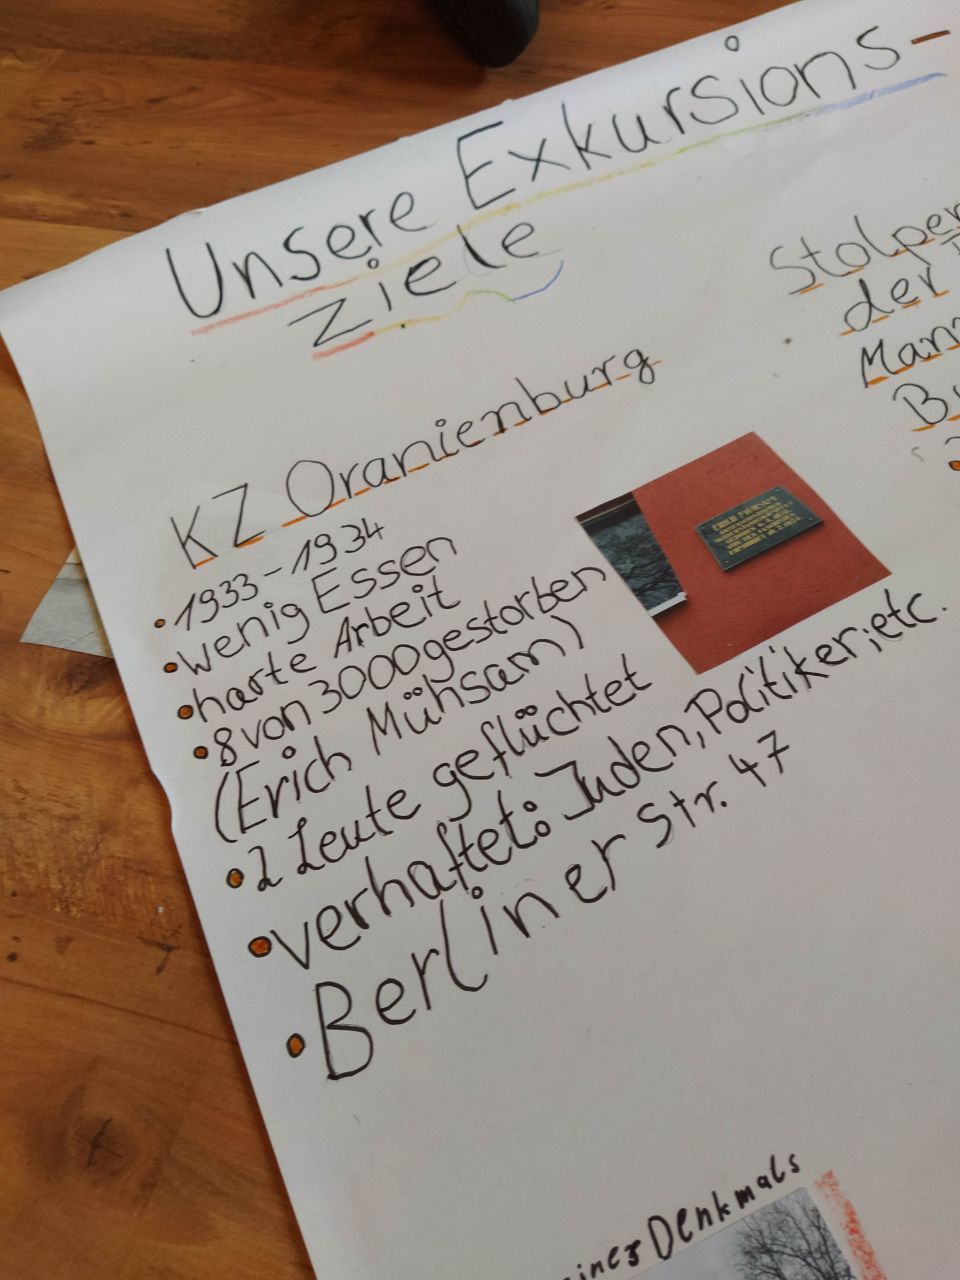 Unsere Exkursions-
ziele
KZ Oranienburg
• 1933-1934
• wenig Essen
• harte Arbeit
• 8 von 3000 gestorben
(Erich Mühsam)
• 2 Leute geflüchtet
• verhaftet: Juden, Politiker, etc.
• Berliner Str. 47
Stolper
der
Man
ERICH MÜHSAM
Denkmals